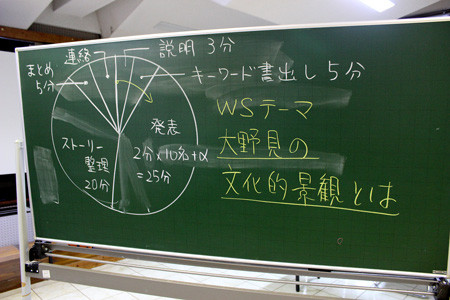 連絡
説明 3分
まとめ
5分
キーワード書出し 5分
発表
2分×10名+α
=25分
ストーリー
整理
20分
WSテーマ
大野見の
文化的景観とは